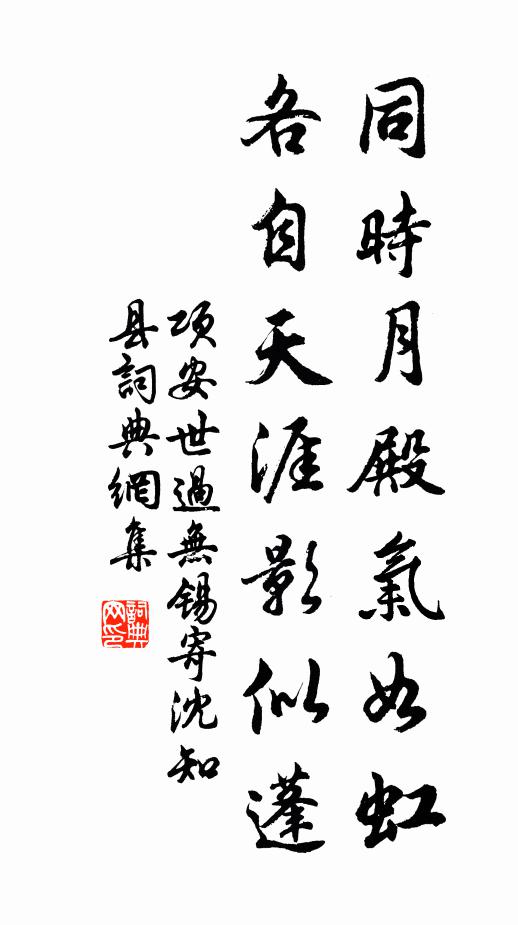 同時月殿氣如虹
各自天涯影似蓬
項安世過無錫寄沈知
县詞典網集
詞典
网印